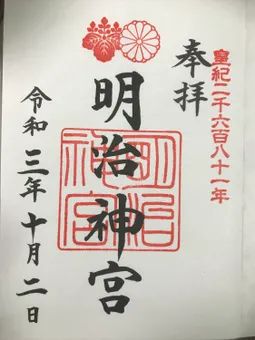 皇紀二千六百八十一年
奉拝
明治神宮
明治神宮
令和三年十月二日